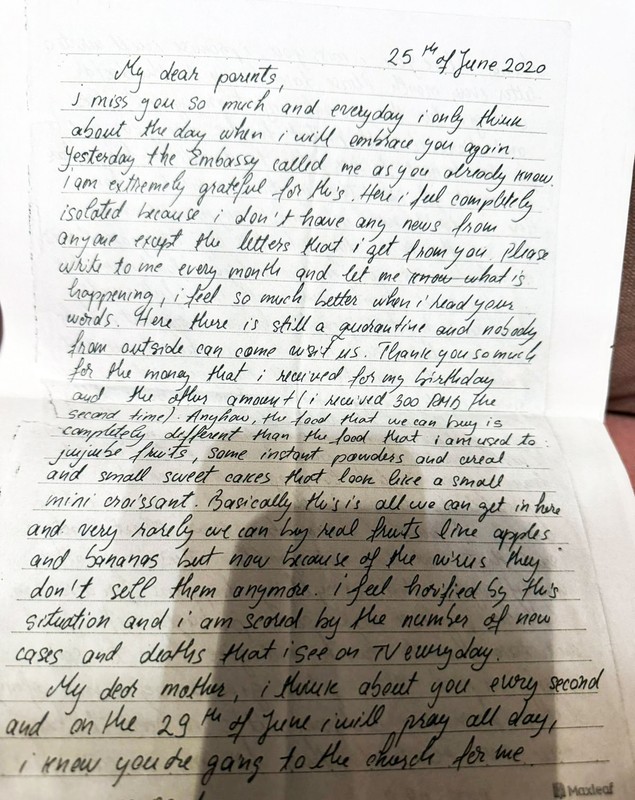 25th of June 2020
My dear parents,
i miss you so much and everyday i only think
about the day when i will embrace you again.
Yesterday the Embassy called me as you already know.
i am extremely grateful for this. Here i feel completely
isolated because i don't have any news from
anyone except the letters that i get from you. Please
write to me every month and let me know what is
happening, i feel so much better when i read your
words. Here there is still a quarantine and nobody
from outside can come visit us. Thank you so much
for the money that i received for my birthday
and the other amount (i received 300 RMB the
second time). Anyhow, the food that we can buy is
completely different than the food that i am used to:
jujube fruits, some instant powders and cereal
and small sweet cakes that look like a small
mini croissant. Basically this is all we can get in here
and very rarely we can buy real fruits like apples
and bananas but now because of the virus they
don't sell them anymore. i feel horified by this
situation and i am scared by the number of new
cases and deaths that i see on TV everyday.
My dear mother, i think about you every second
and on the 29th of June i will pray all day,
i know you're going to the church for me.
Maxleaf